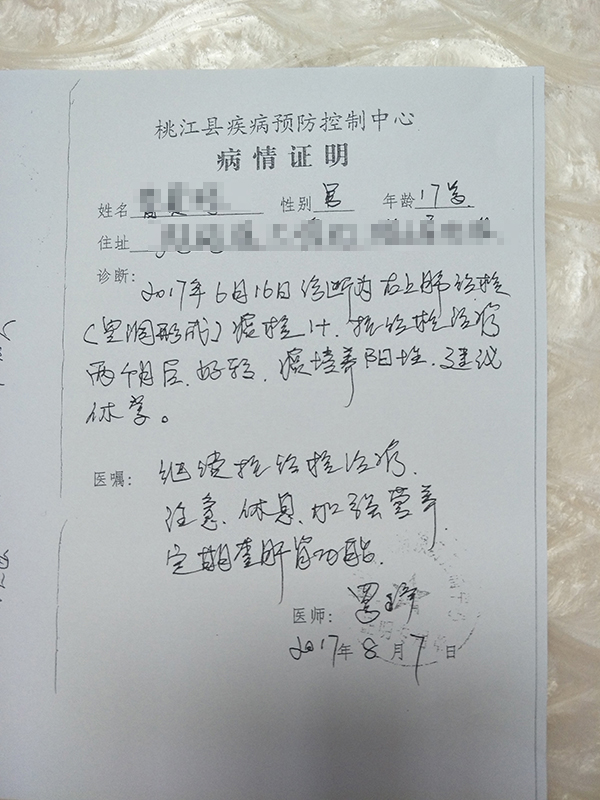 桃江县疾病预防控制中心
病情证明
姓名 性别 男 年龄 17岁
住址
诊断: 2017年6月16日诊断为右上肺结核
(空洞形成)痰检1+. 抗结核治疗
两个月后.好转.痰培养阳性.建议
休学。
医嘱: 继续抗结核治疗.
注意.休息.加强营养
定期查肝肾功能.
医师:
2017年8月7日